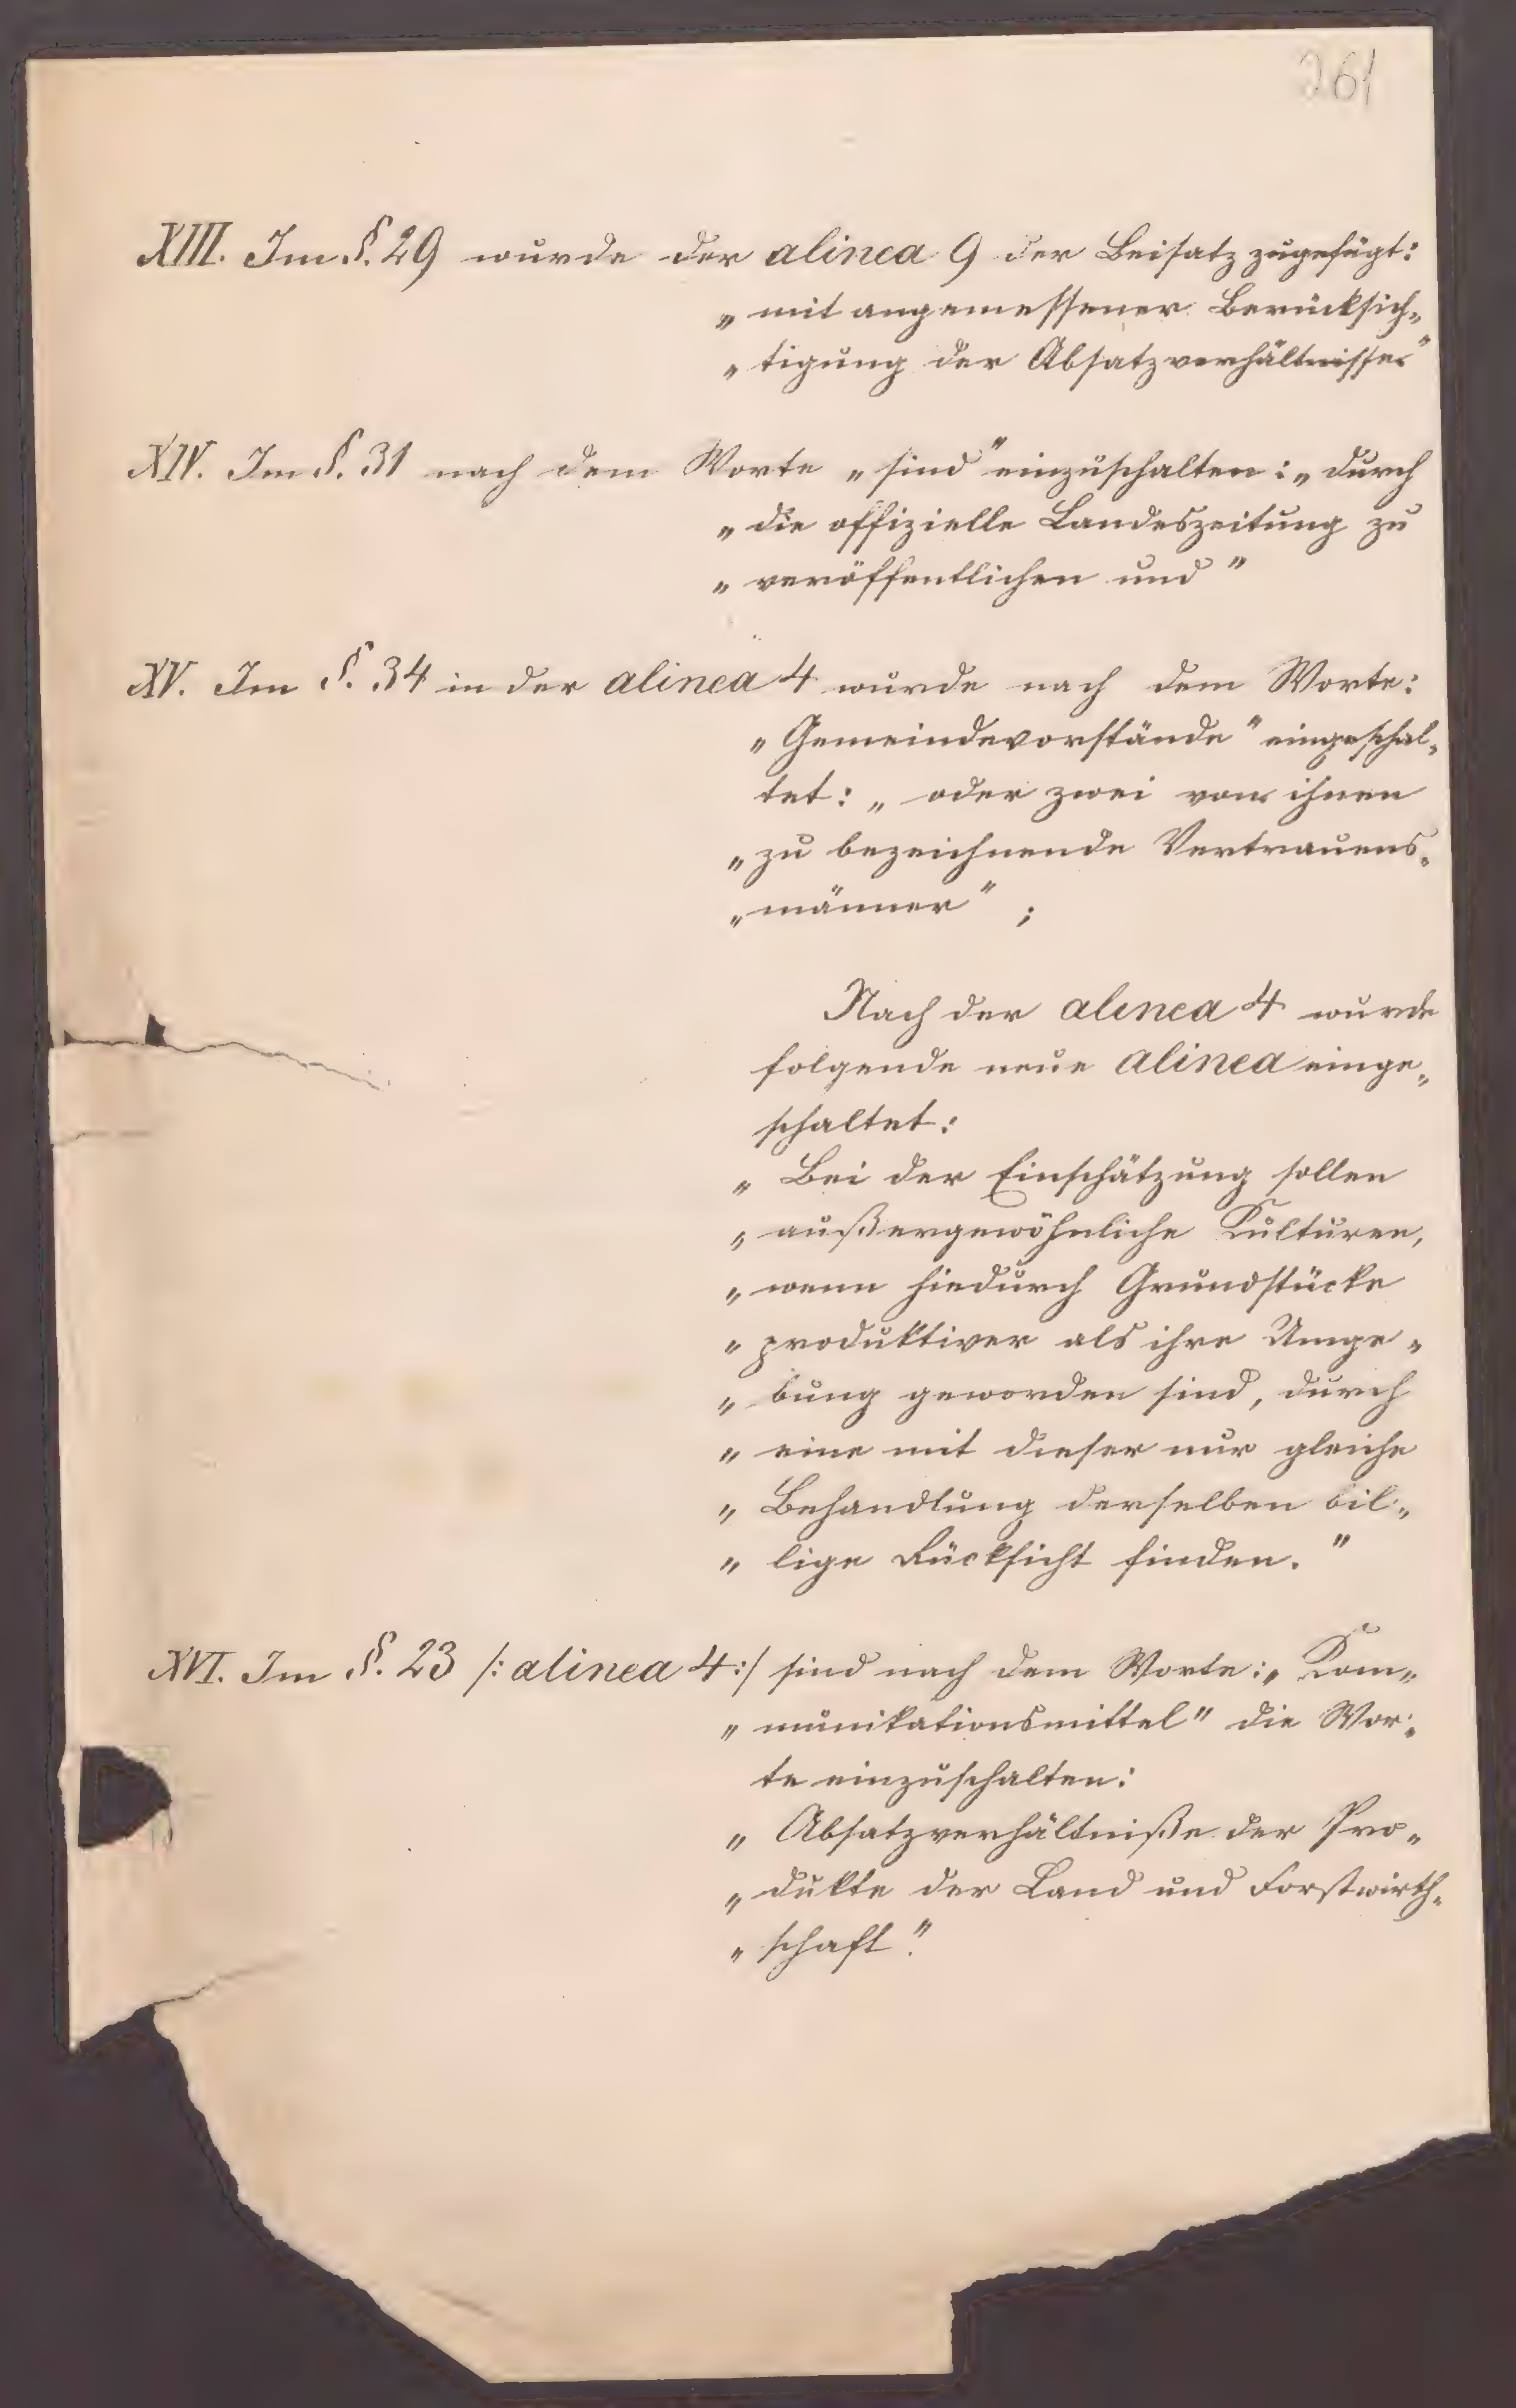 261
XIII. Im §. 29 wurde der alinea 9 der Beisatz zugefügt:
„ mit angemessener Berücksich„
„ tigung der Absatzverhältnisse"
XIV. Im §. 31 nach dem Worte „sind" einzuschalten: „durch
„ die offizielle Landeszeitung zu
„ veröffentlichen und "
XV. Im §. 34 in der alinea 4 wurde nach dem Worte:
„Gemeindevorstände" eingeschal„
tet: „ oder zwei von ihnen
„ zu bezeichnende Vertrauens„
„männer" ;
Nach der alinea 4 wurde
folgende neue alinea einge„
schaltet:
„ Bei der Einschätzung sollen
„ außergewöhnliche Kulturen,
„ wenn hiedurch Grundstücke
„ produktiver als ihre Umge„
„ bung geworden sind, durch
„ eine mit dieser nur gleiche
„ Behandlung derselben bil„
„ lige Rücksicht finden. "
XVI. Im §. 23 /: alinea 4 :/ sind nach dem Worte: „Kom„
„ munikationsmittel" die Wor„
te einzuschalten:
„ Absatzverhältniße der Pro„
„ dukte der Land und Forstwirth„
„ schaft".